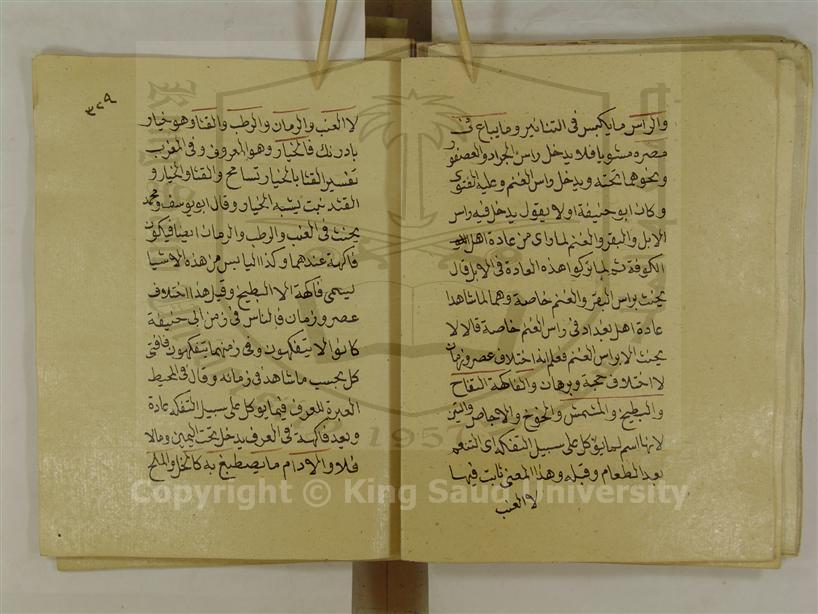 والراس ما يكبس في التنانير وما يباع في
مصره مشويا فلا يدخل راس الجراد والعصفور
ونحوهما تحته ويدخل راس الغنم وعليه الفتوى
وكان ابو حنيفة اولا يقول يدخل فيه راس
الابل والبقر والغنم لما راى من عادة اهل
الكوفة ثم لما تركوا هذه العادة في الابل قال
يحنث براس البقر والغنم خاصة وهما لما شاهدا
عادة اهل بغداد في راس الغنم خاصة قالا لا
يحنث الا براس الغنم فعلم انه اختلاف عصر وزمان
لا اختلاف حجة وبرهان والفاكهة التفاح
والبطيخ والمشمش والخوخ والاجاص والتين
لانها اسم لما يؤكل على سبيل التفكه اى التنعم
بعد الطعام وقبله وهذا المعنى ثابت فيها
لا العنب
٣٢٩
لا العنب والرمان والرطب والقثا وهو خيار
بادرنك فالخيار وهو المعروف وفى المغرب
تفسير القثا بالخيار تسامح والقثا والخيار و
القثد نبت يشبه الخيار وقال ابو يوسف ومحمد
يحنث في العنب والرطب والرمان ايضا فيكون
فاكهة عندهما وكذا اليابس من هذه الاشيا
يسمى فاكهة الا البطيخ وقيل هذا اختلاف
عصر وزمان فالناس في زمن ابى حنيفة
كانوا لا يتفكهون وفى زمنهما يتفكهون فافتى
كل بحسب ما شاهد في زمانه وقال في المحيط
العبرة للعرف فيما يؤكل على سبيل التفكه عادة
ويعد فاكهة في العرف يدخل تحت اليمين وما لا
فلا والادام ما يصطبغ به كالخل والملح
1957
Copyright © King Saud University